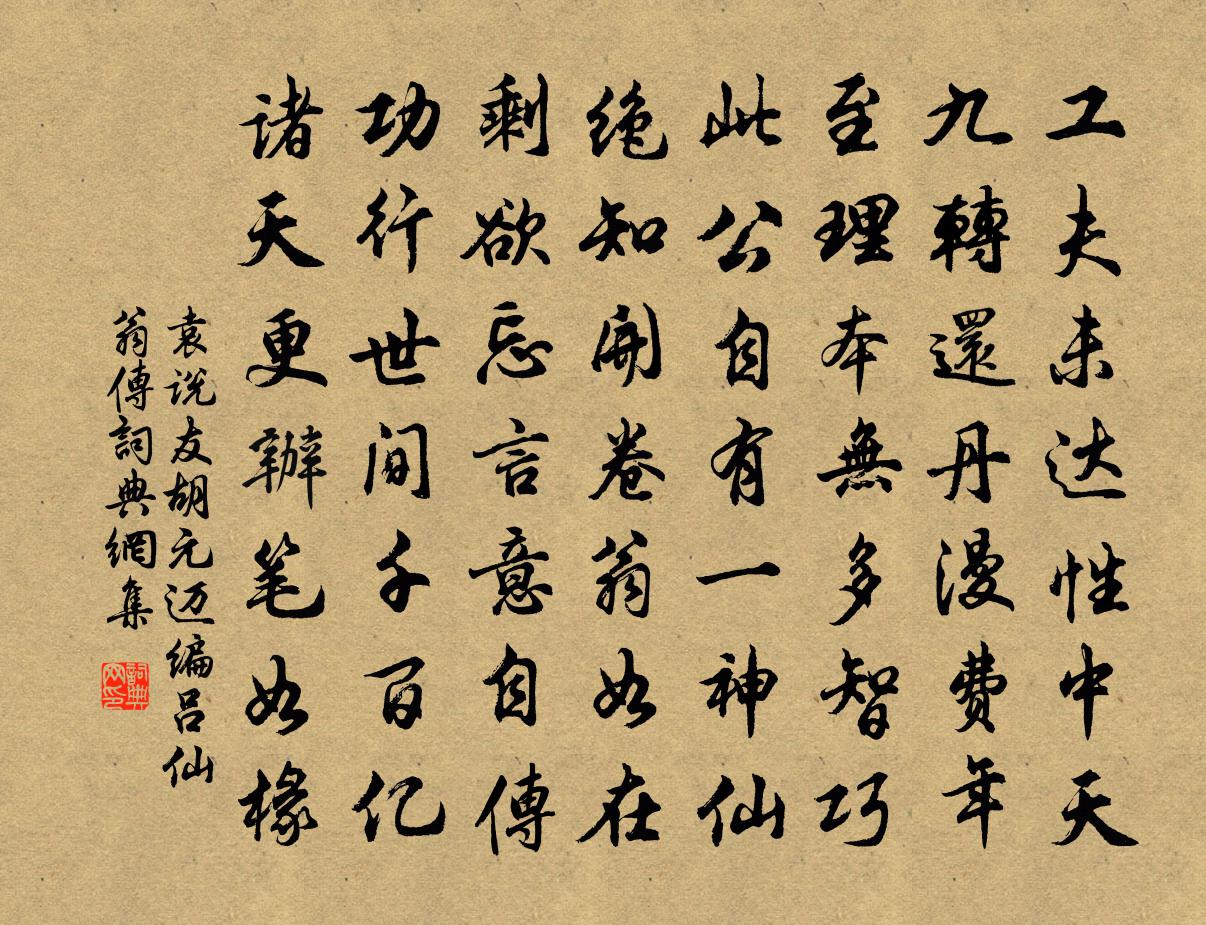 工夫未达性中天
九轉還丹漫費年
至理本無多智巧
此公自有一神仙
绝知開卷翁如在
剩欲忘言意自傳
功行世间千百亿
诸天更辦笔如椽
袁说友胡元迈编吕仙
翁傳詞典網集
詞典網印